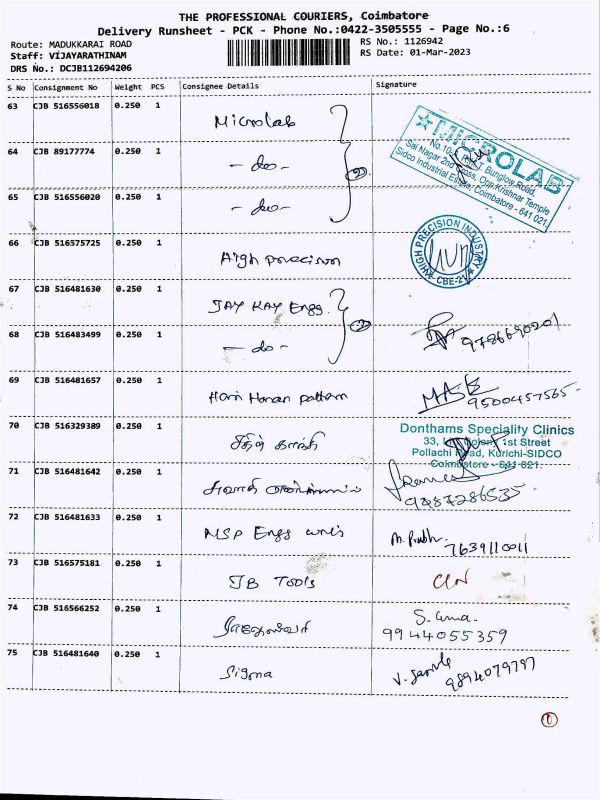 THE PROFESSIONAL COURIERS, Coimbatore
Delivery Runsheet - PCK - Phone No.:0422-3505555 - Page No.:6
Route: MADUKKARAI ROAD
RS No.: 1126942
Staff: VIJAYARATHINAM
RS Date: 01-Mar-2023
DRS No.: DCJB112694206
S No Consignment No Weight PCS Consignee Details Signature
63 CJB 516556018 0.250 1 Microlab
64 CJB 89177774 0.250 1 -do-
65 CJB 516556020 0.250 1 -do-
MICROLAB
Sai Nagar 2nd Cross, Opp.Krishnar Temple
Sidco Industrial Estate, Coimbatore - 641 021
66 CJB 516575725 0.250 1 High precision
HIGH PRECISION INDUSTRY
CBE-21
67 CJB 516481630 0.250 1 JAY KAY Engg.
68 CJB 516483499 0.250 1 -do-
9786690201
69 CJB 516481657 0.250 1 Hari Haran
9500457565
70 CJB 516329389 0.250 1
Donthams Speciality Clinics
33, 1st Street
Pollachi Road, Kurichi-SIDCO
Coimbatore - 641 021.
71 CJB 516481642 0.250 1
9487286535
72 CJB 516481633 0.250 1 MSP Engg
7639110011
73 CJB 516575181 0.250 1 JB Tools
74 CJB 516566252 0.250 1
S. uma.
9944055359
75 CJB 516481640 0.250 1 Sigma
9894079797